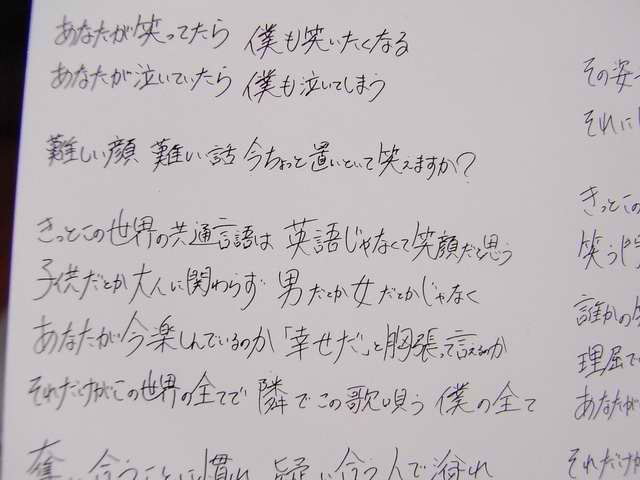 あなたが笑ってたら 僕も笑いたくなる
あなたが泣いていたら 僕も泣いてしまう
難しい顔 難しい話 今ちょっと置いといて笑えますか?
きっとこの世界の共通言語は 英語じゃなくて笑顔だと思う
子供だとか大人に関わらず 男だとか女だとかじゃなく
あなたが今楽しんでいるのか「幸せだ」と胸張って言えるのか
それだけがこの世界の全てで 隣でこの歌唄う 僕の全て
奪い合うことに慣れ 疑い合う人で溢れ
その姿
それに
きっとこの
笑う門
誰かの
理屈で
あなたが
それだけが